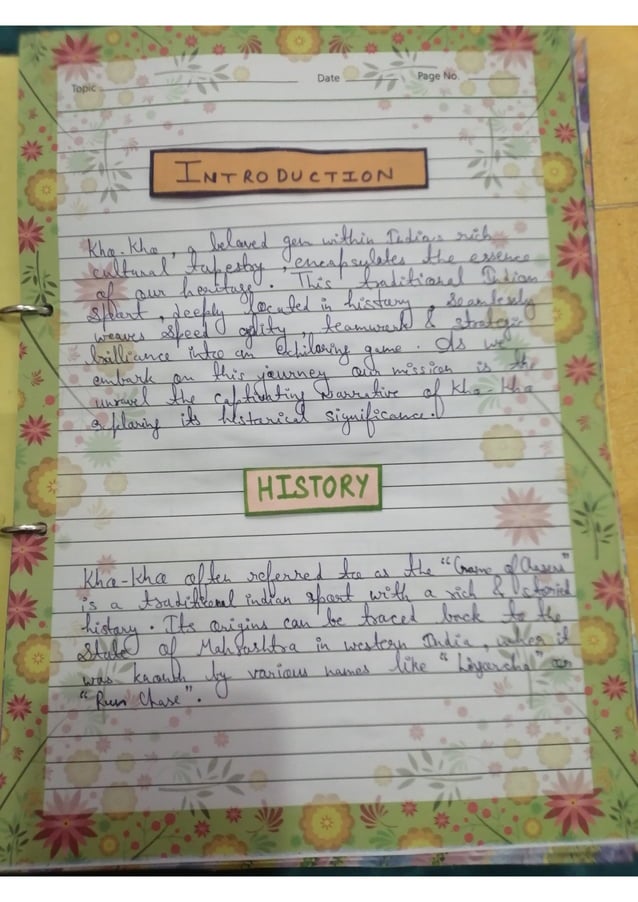 Topic
Date
Page No.
INTRODUCTION
Kho-Kho, a beloved gem within India's rich
cultural tapestry, encapsulates the essence
of our heritage. This traditional Indian
sport, deeply located in history, seamlessly
weaves speed agility, teamwork & strategic
brilliance into an exhilaring game. As we
embark on this journey our mission is the
unravel the captivating narrative of Kho-Kho
exploring its historical significance.
HISTORY
Kho-Kho often referred to as the "Game of
is a traditional indian sport with a rich & storied
history. Its origins can be traced back to the
state of Mahrashtra in western India, it
was by various names like or
"Run Chase".